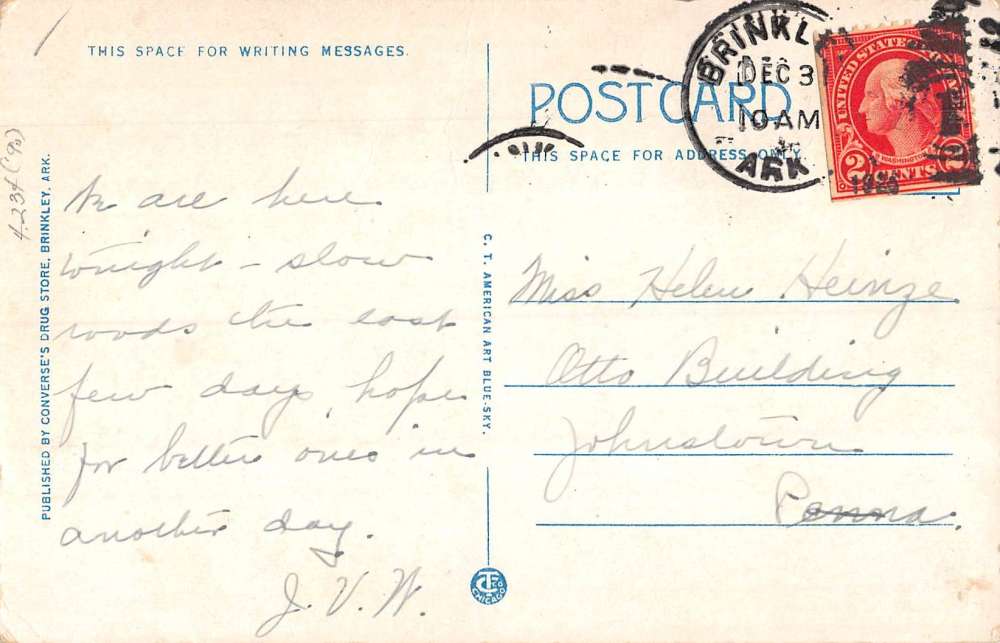 THIS SPACE FOR WRITING MESSAGES.
POST CARD
THIS SPACE FOR ADDRESS ONLY.
BRINKLEY
DEC 3
10 AM
ARK
UNITED STATES
WASHINGTON
2 CENTS
PUBLISHED BY CONVERSE'S DRUG STORE, BRINKLEY, ARK.
C. T. AMERICAN ART BLUE-SKY.
are here
tonight - slow
roads the last
few days, hope
for better ones in
another day.
J. V. W.
Miss Helen Heinze
Otto Building
Johnstown
Penna.
CT CO
CHICAGO